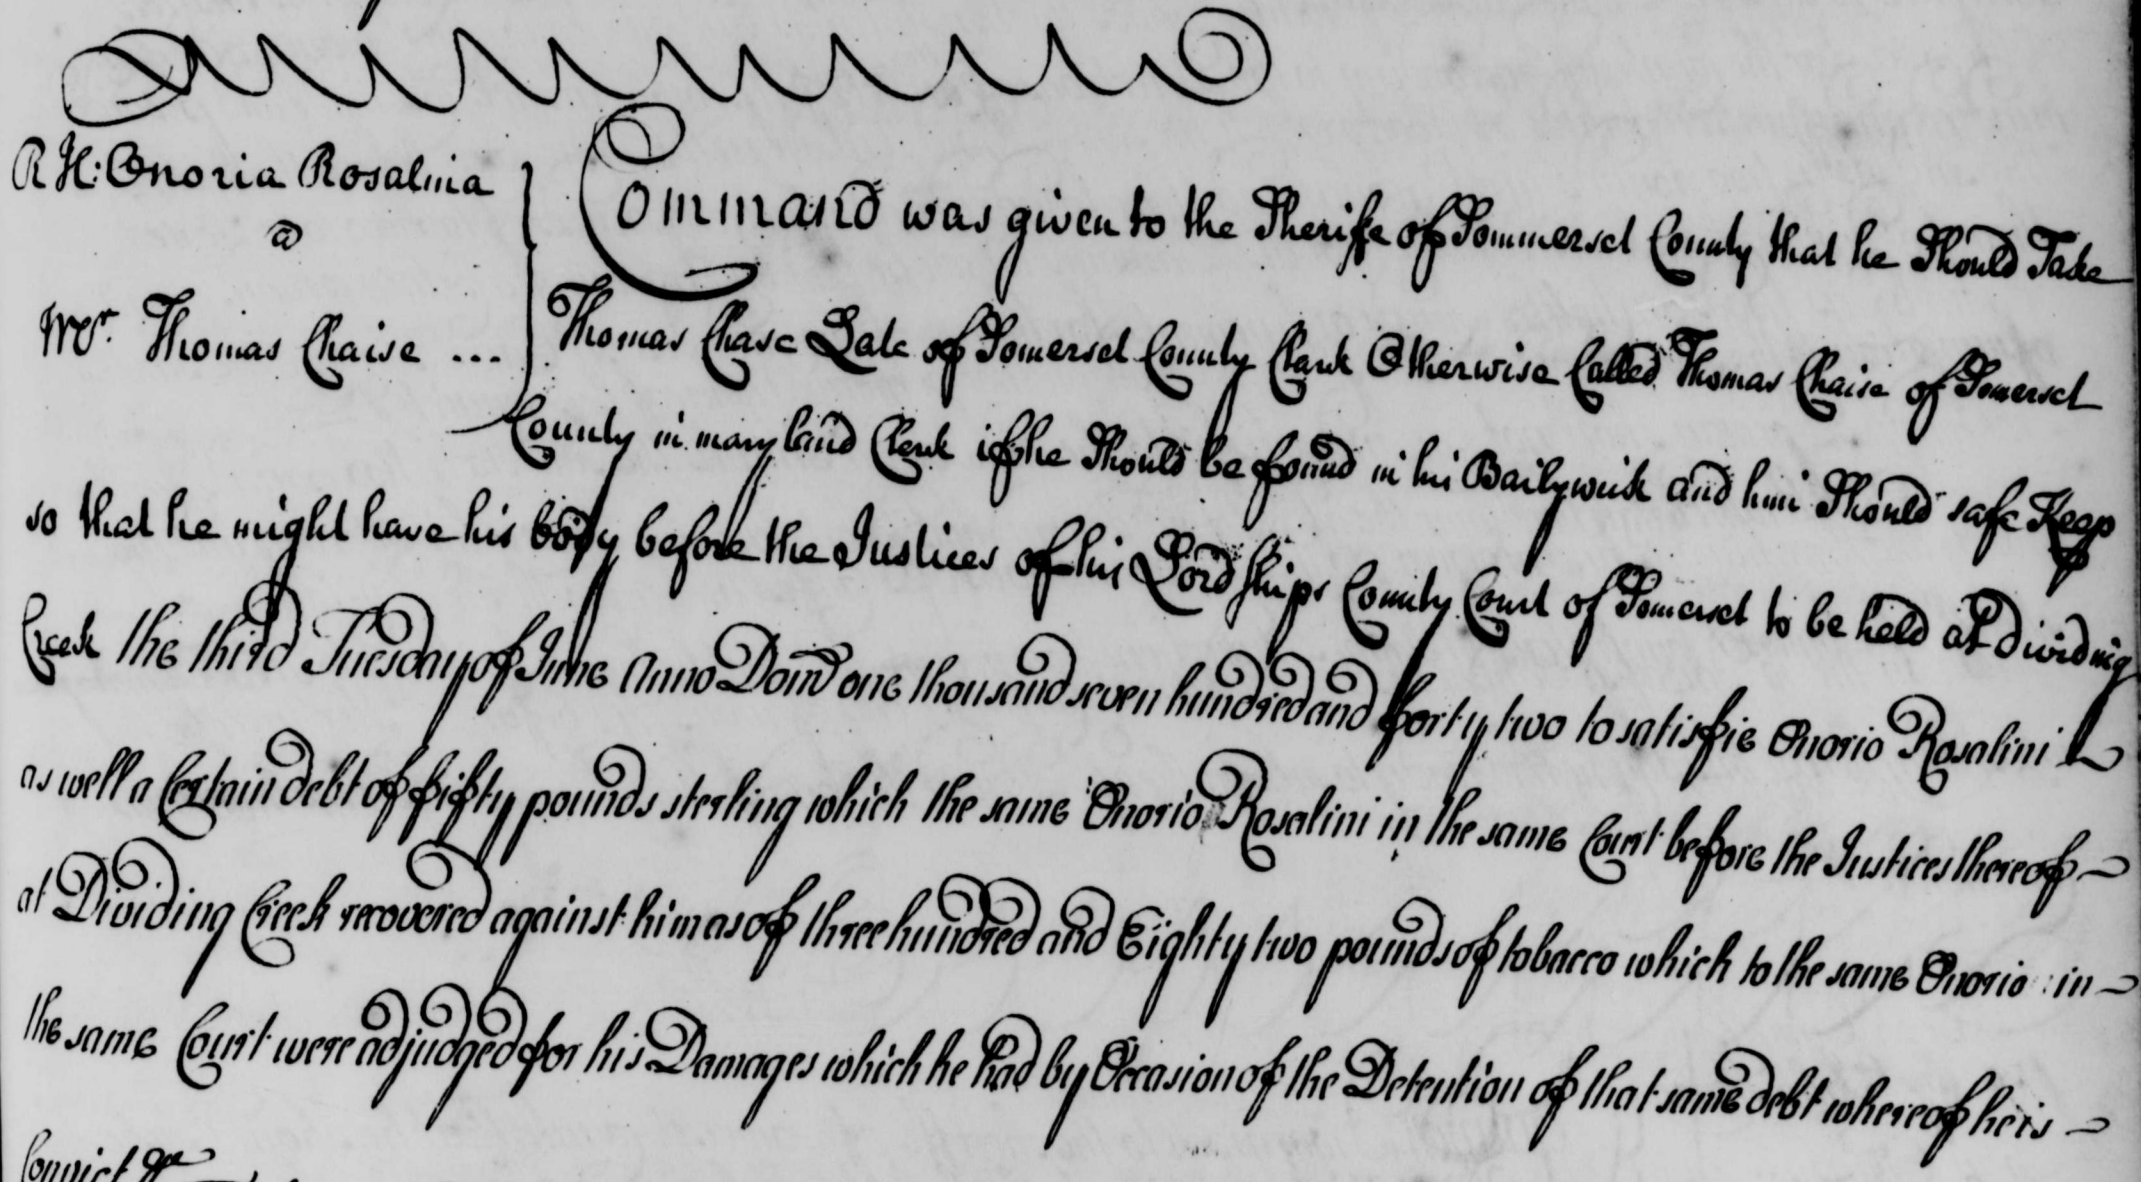 R H: Onoria Rosalina
a
Mr. Thomas Chaise ...
Command was given to the Sheriffe of Sommerset County that he Should Take
Thomas Chase Late of Somerset County Clark Otherwise Called Thomas Chaise of Somerset
County in mary land Clerk if he Should be found in his Bailywick and him Should safe Keep
so that he might have his body before the Justices of his Lordships County Court of Somerset to be held at dividing
Creek the third Tuesday of June Anno Domd one thousand seven hundred and forty two to satisfie Onorio Rosalini
as well a Certain debt of fifty pounds sterling which the same Onorio Rosalini in the same Court before the Justices thereof
at Dividing Creek recovered against him as of three hundred and Eighty two pounds of tobacco which to the same Onorio in
the same Court were adjudged for his Damages which he had by Occasion of the Detention of that same debt whereof he is
Convict